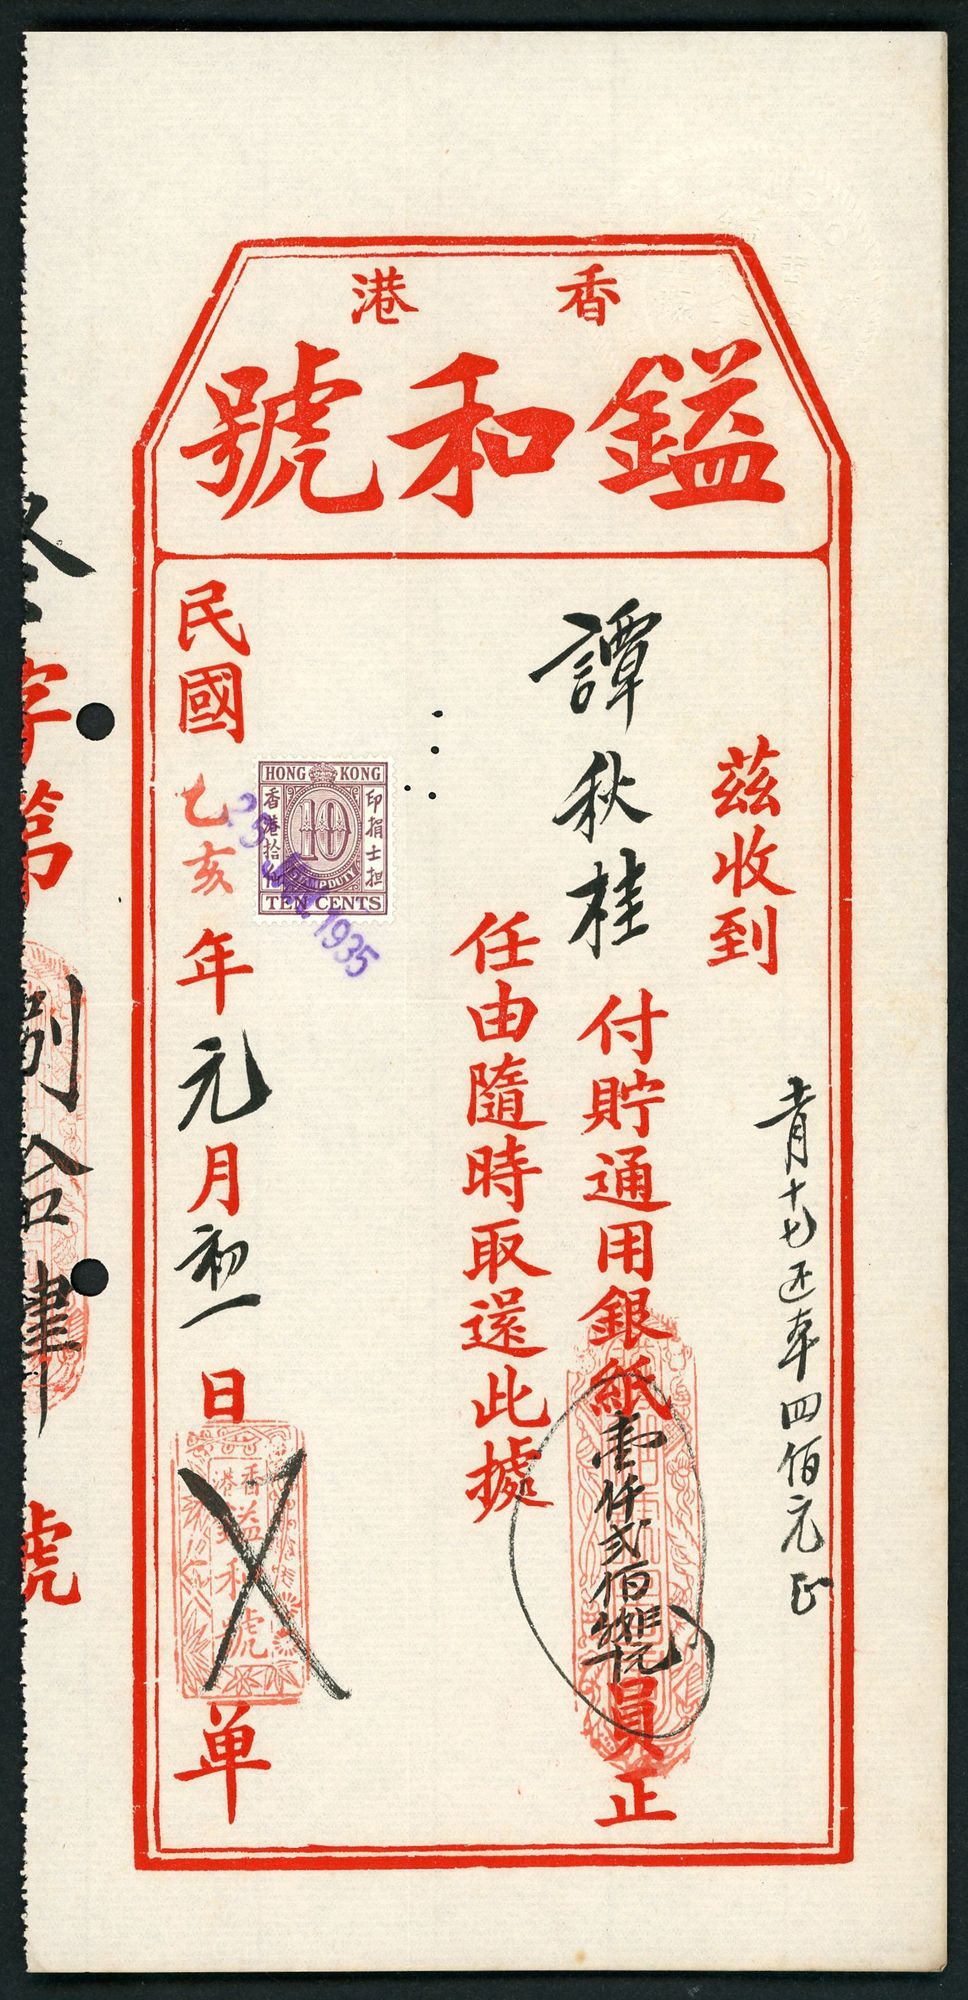 香港
鎰和號
茲收到
譚秋桂付貯通用銀紙壹仟貳佰員正
任由隨時取還此據
民國乙亥年元月初一日單
十七還本四佰元正
HONG KONG
香港拾仙
印捐士担
10
STAMP DUTY
TEN CENTS
1935
香港
鎰和號
字第捌拾肆號